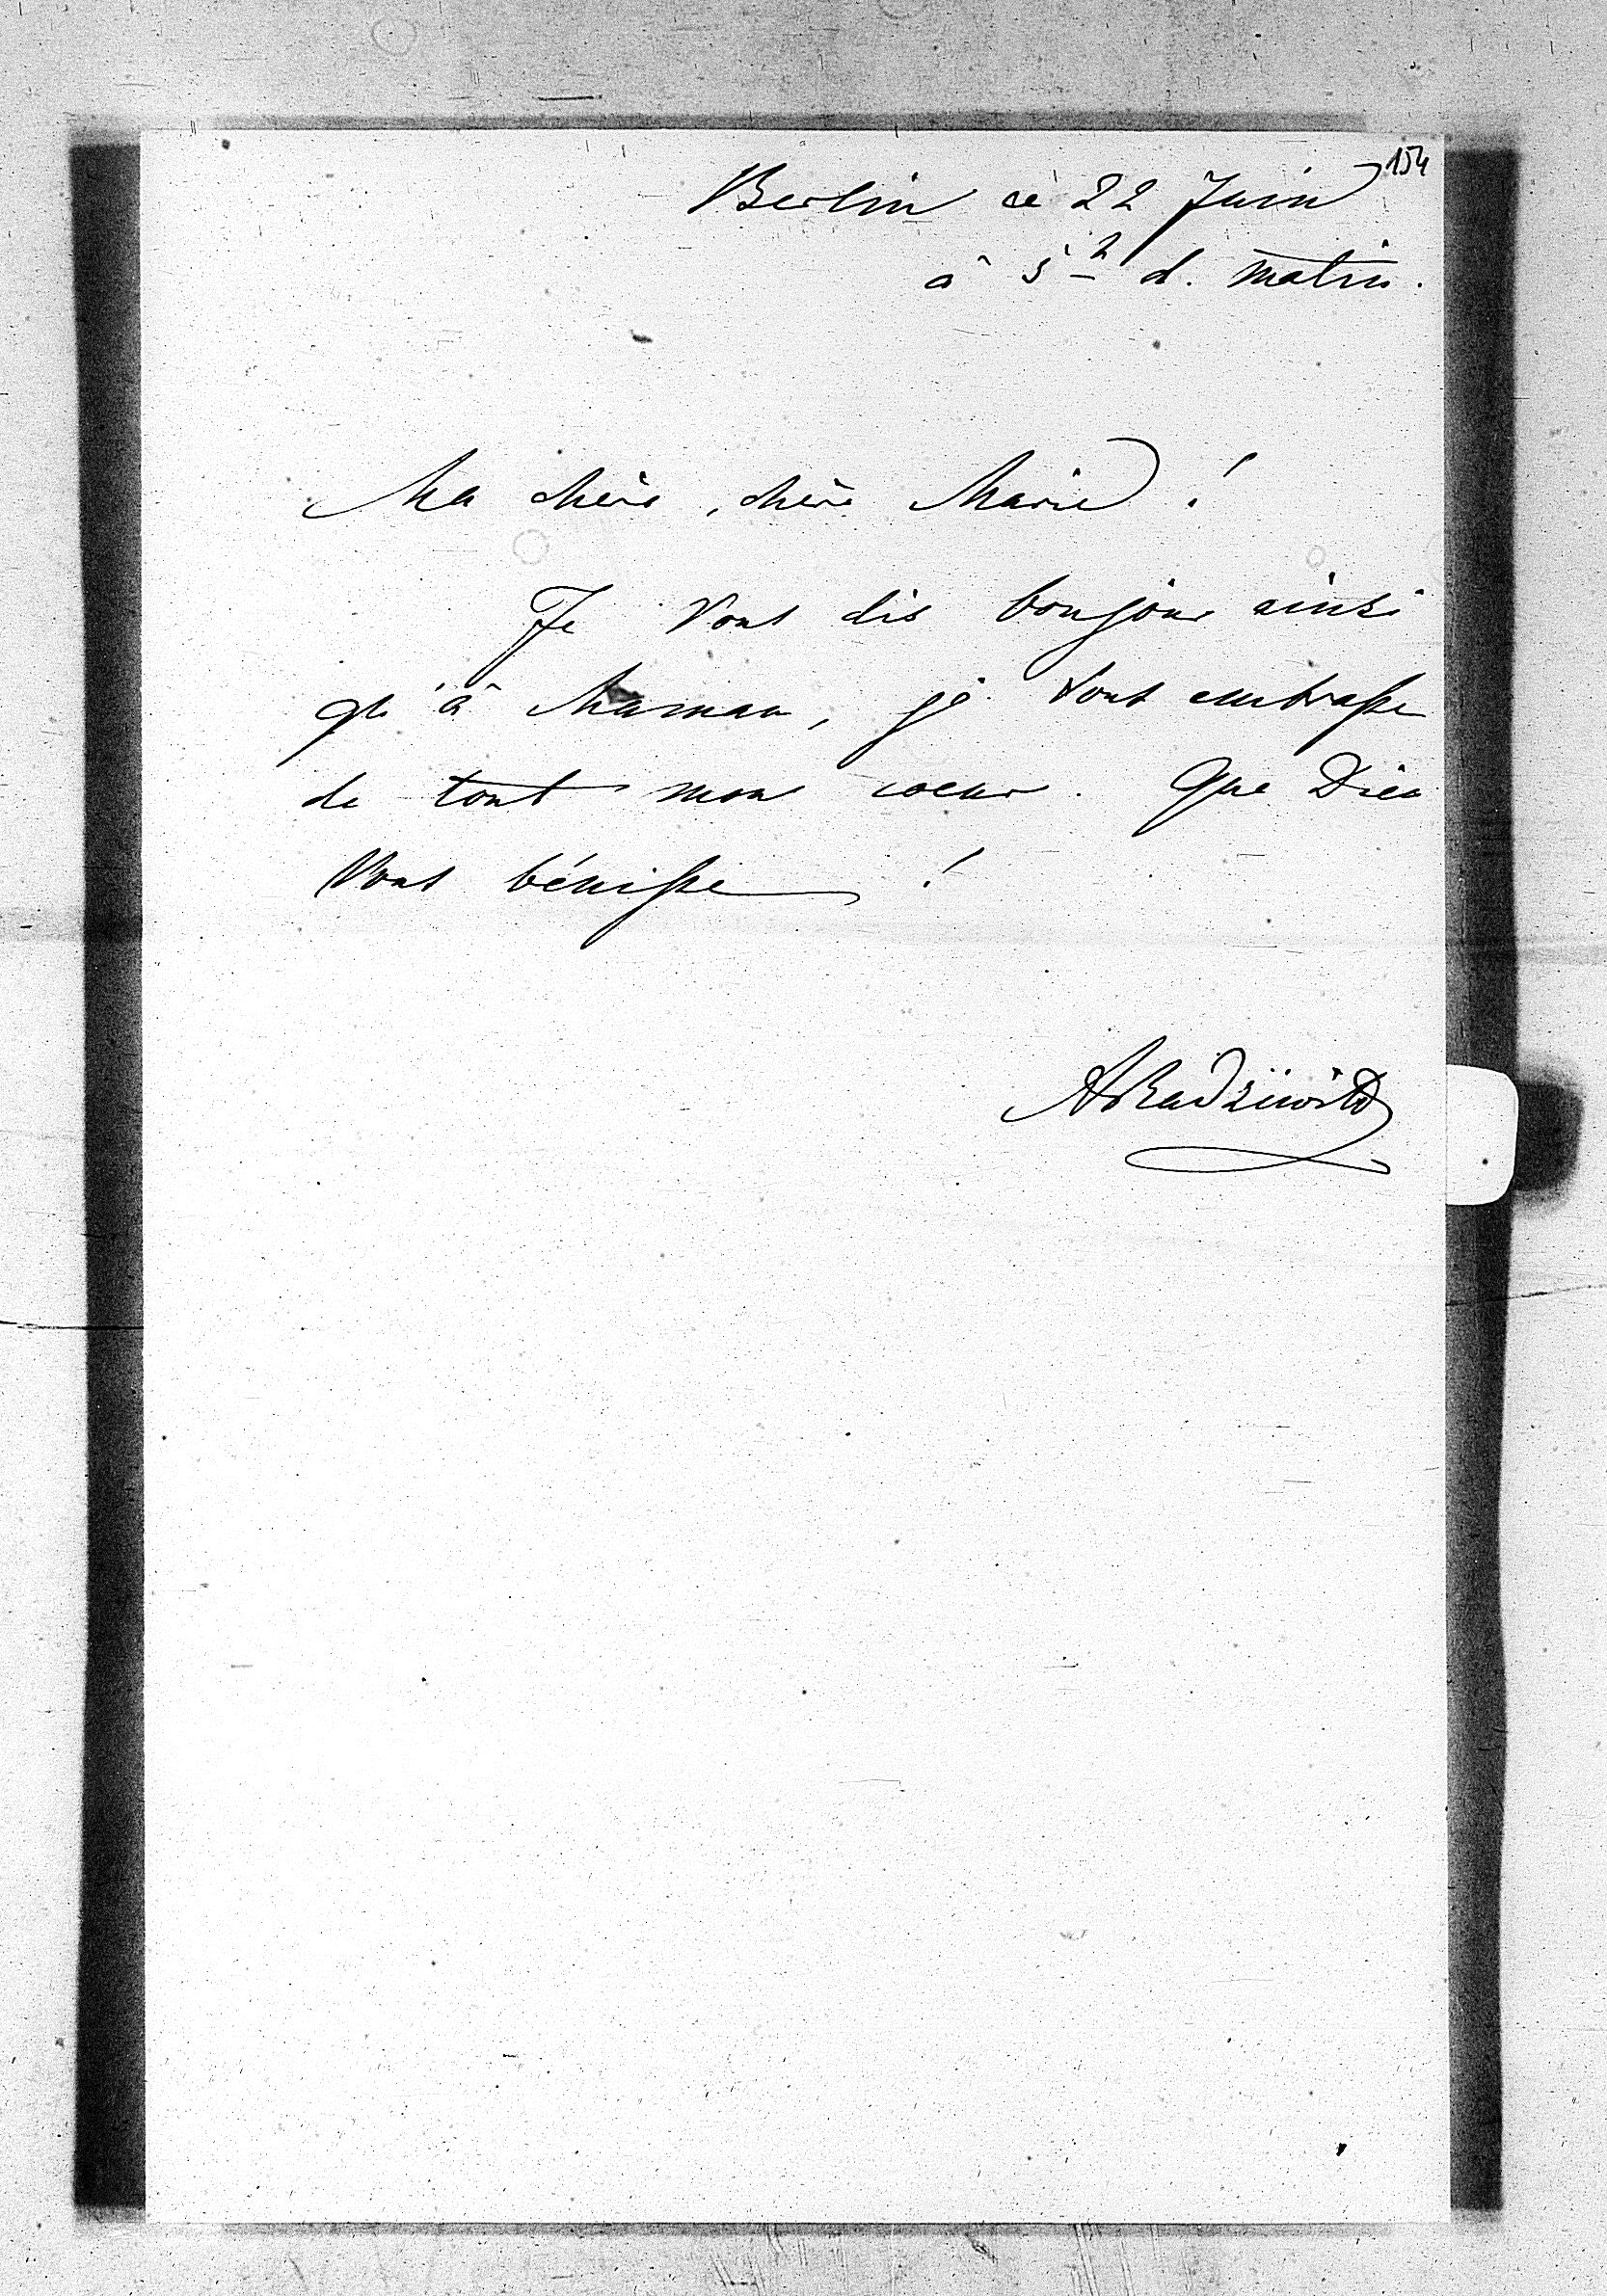 154
Berlin ce 22 Juin
à 5h d. matin.
Ma chère, chère Marie !
Je Vous dis bonjour ainsi
qu'à Maman, je Vous embrasse
de tout mon coeur. Que Dieu
Vous bénisse !
ARadziwiłł